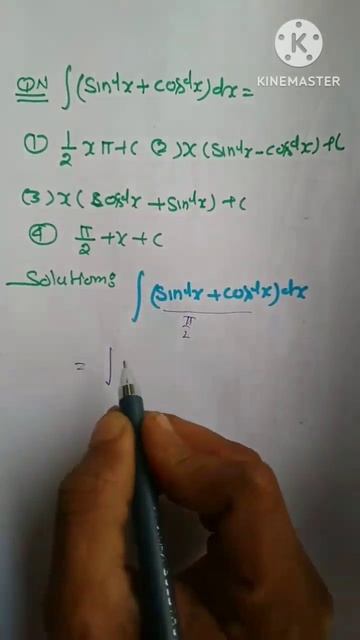 KINEMASTER
QN ∫(Sin⁻¹x + cos⁻¹x)dx =
① 1/2 xπ + C (2) x(Sin⁻¹x - cos⁻¹x) + C
(3) x(cos⁻¹x + Sin⁻¹x) + C
④ π/2 + x + C
Solutions ∫(Sin⁻¹x + cos⁻¹x)dx
π/2
= ∫